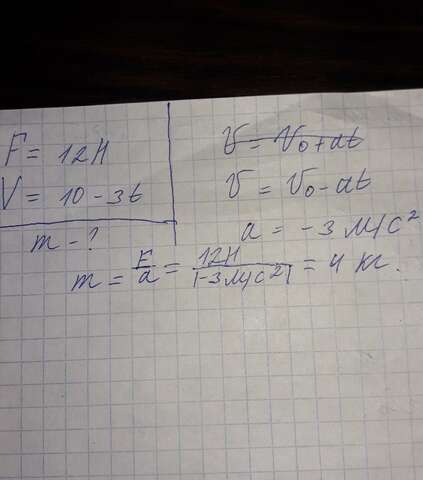 F = 12Н
V = 10 - 3t
m - ?
V = V₀ + at
V = V₀ - at
a = -3 м/с²
m = F/a = 12Н/|-3 м/с²| = 4 кг.